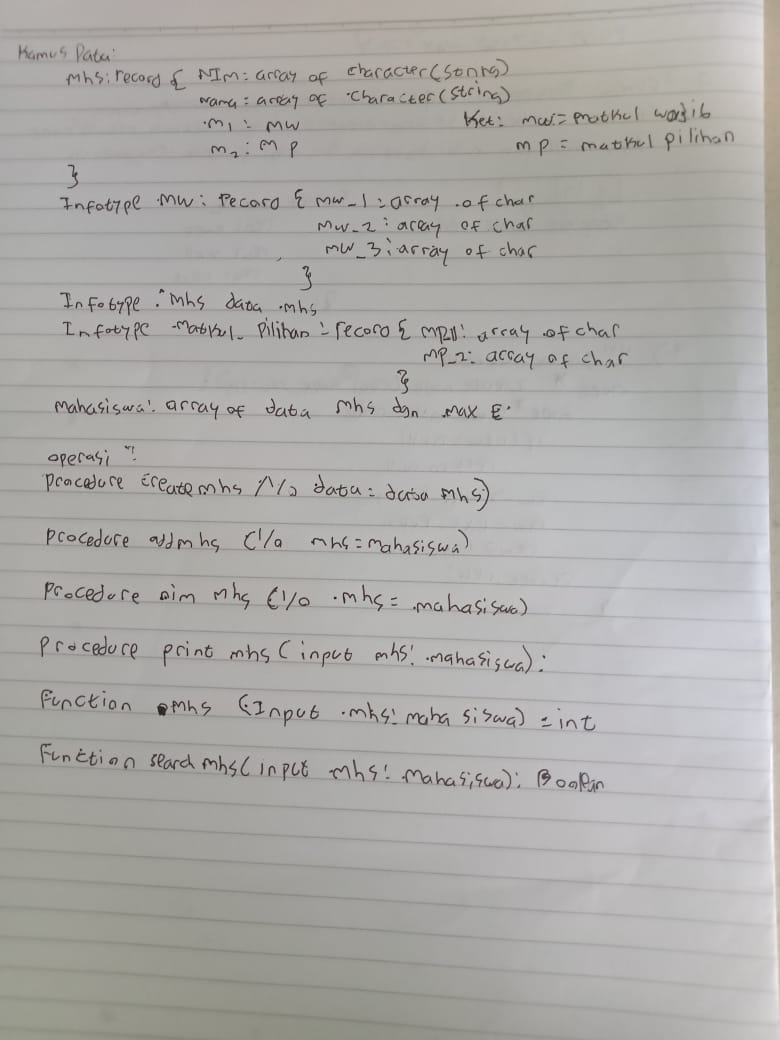 Kamus Data:
Mhs: record { NIM: array of character (String)
nama: array of character (String)
m1: mw
Ket: mw = matkul wajib
m2: mp
mp = matkul pilihan
}
Infotype mw: record { mw_1: array of char
mw_2: array of char
mw_3: array of char
}
Infotype: mhs data mhs
Infotype Matkul_Pilihan: record { mp_1: array of char
mp_2: array of char
}
mahasiswa: array of data mhs dgn max
operasi:
procedure create mhs (I/O data: data mhs)
procedure add mhs (I/O mhs = mahasiswa)
procedure mhs (I/O mhs = mahasiswa)
procedure print mhs (input mhs: mahasiswa):
Function mhs (Input mhs: mahasiswa) = int
Function search mhs (input mhs: Mahasiswa): Boolean